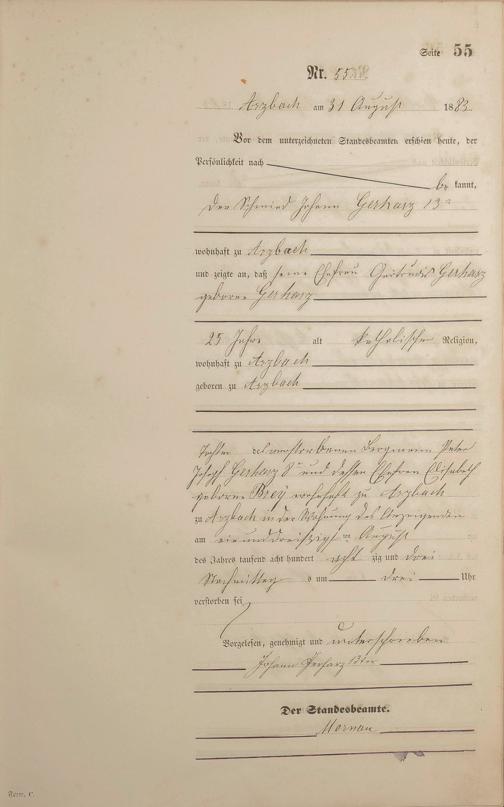 Seite 55
Nr. 55
Arzbach am 31 August 1883
Vor dem unterzeichneten Standesbeamten erschien heute, der
Persönlichkeit nach
be kannt,
der Schmied Johann Gerharz 13r
wohnhaft zu Arzbach
und zeigte an, daß seine Ehefrau Gertrudis Gerharz
geborne Gerharz
25 Jahre alt katholischer Religion,
wohnhaft zu Arzbach
geboren zu Arzbach
Tochter verstorbenen Bergmann Peter
Joseph Gerharz 8r und dessen Ehefrau Elisabeth
geborne Brey wohnhaft zu Arzbach
zu Arzbach in der Wohnung des Anzeigenden
am ein und dreißigsten August
des Jahres tausend acht hundert acht zig und drei
Nachmittags um drei Uhr
verstorben sei
Vorgelesen, genehmigt und unterschrieben
Johann Gerharz 13ter
Der Standesbeamte.
Form. C.